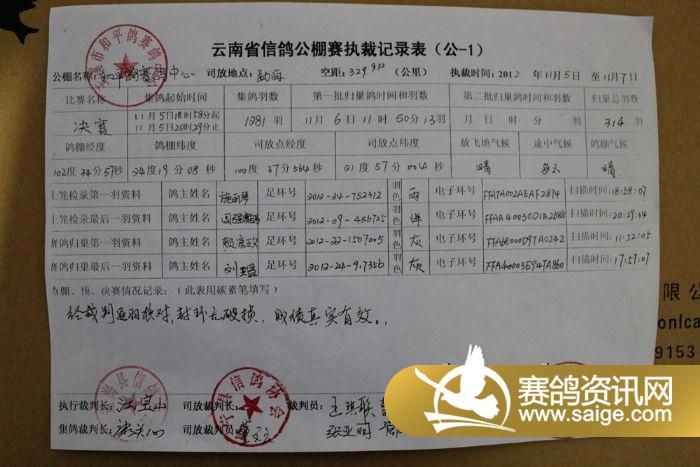 云南省信鸽公棚赛执裁记录表（公-1）
公棚名称：和平鸽赛鸽中心 司放地点：勐海 空距：329.932（公里） 执裁时间：2012 年11月5日 至11月7日
比赛名称 集鸽起始时间 集鸽羽数 第一批归巢鸽时间和羽数 第二批归巢鸽时间和羽数 归巢总羽数
决赛 11月5日18时58分起 11月5日20时29分止 1281羽 11月6日11时50分13羽 月 日 时 分 羽 314羽
鸽棚经度 鸽棚纬度 司放点经度 司放点纬度 放飞地气候 途中气候 鸽棚气候
102度34分57秒 24度19分08秒 100度37分564秒 21度57分004秒 晴 多云 晴
上笼检录第一羽资料 鸽主姓名 足环号 2012-24-752312 羽色 雨 电子环号 FFA7A002AEAF2834 扫描时间：18:58:07
上笼检录最后一羽资料 鸽主姓名 足环号 2012-09-456725 羽色 绛 电子环号 扫描时间：20:29:34
赛鸽归巢第一羽资料 鸽主姓名 足环号 2012-22-1507005 羽色 灰 电子环号 FFA6B000D97A0242 扫描时间：11:52:05
赛鸽归巢最后一羽资料 鸽主姓名 足环号 羽色 灰 电子环号 FFA40003E947A860 扫描时间：17:57:07
公棚、预、决赛情况记录：（此表用碳素笔填写）
经裁判逐羽核对，封环无破损、成绩真实有效。
执行裁判长：江宝山 司放裁判长： 裁判员：王琪联
集鸽裁判长： 司放裁判员： 张亚明
市和平鸽赛鸽中心
县信鸽
县信鸽协会
限公
onlca
9153
赛鸽资讯网
www.saige.com